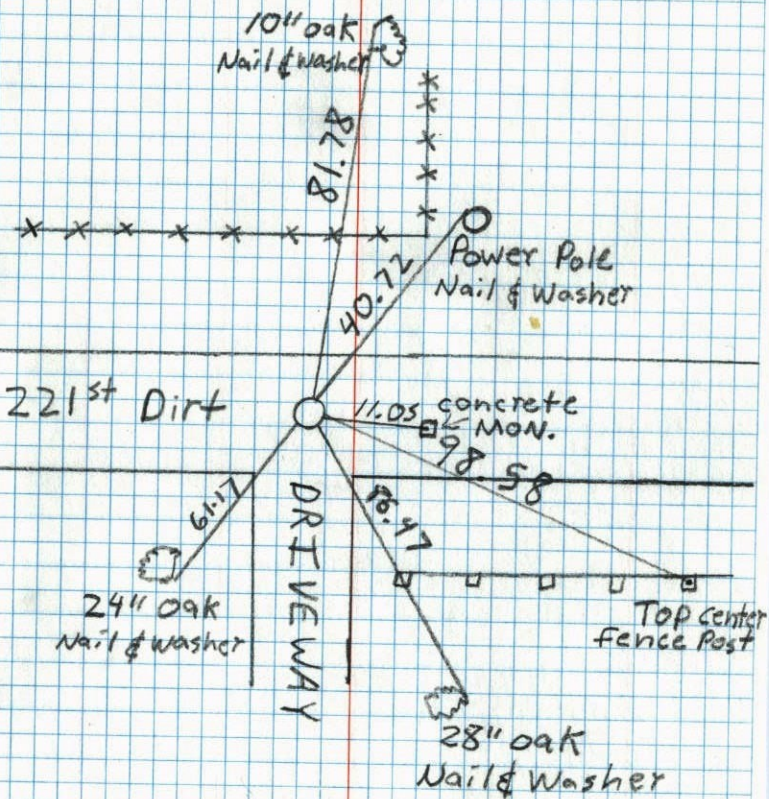 10" oak
Nail & Washer
81.78
Power Pole
Nail & Washer
40.72
221st Dirt
11.05
concrete
MON.
98.58
61.17
DRIVEWAY
24" oak
Nail & Washer
Top center
fence Post
28" oak
Nail & Washer